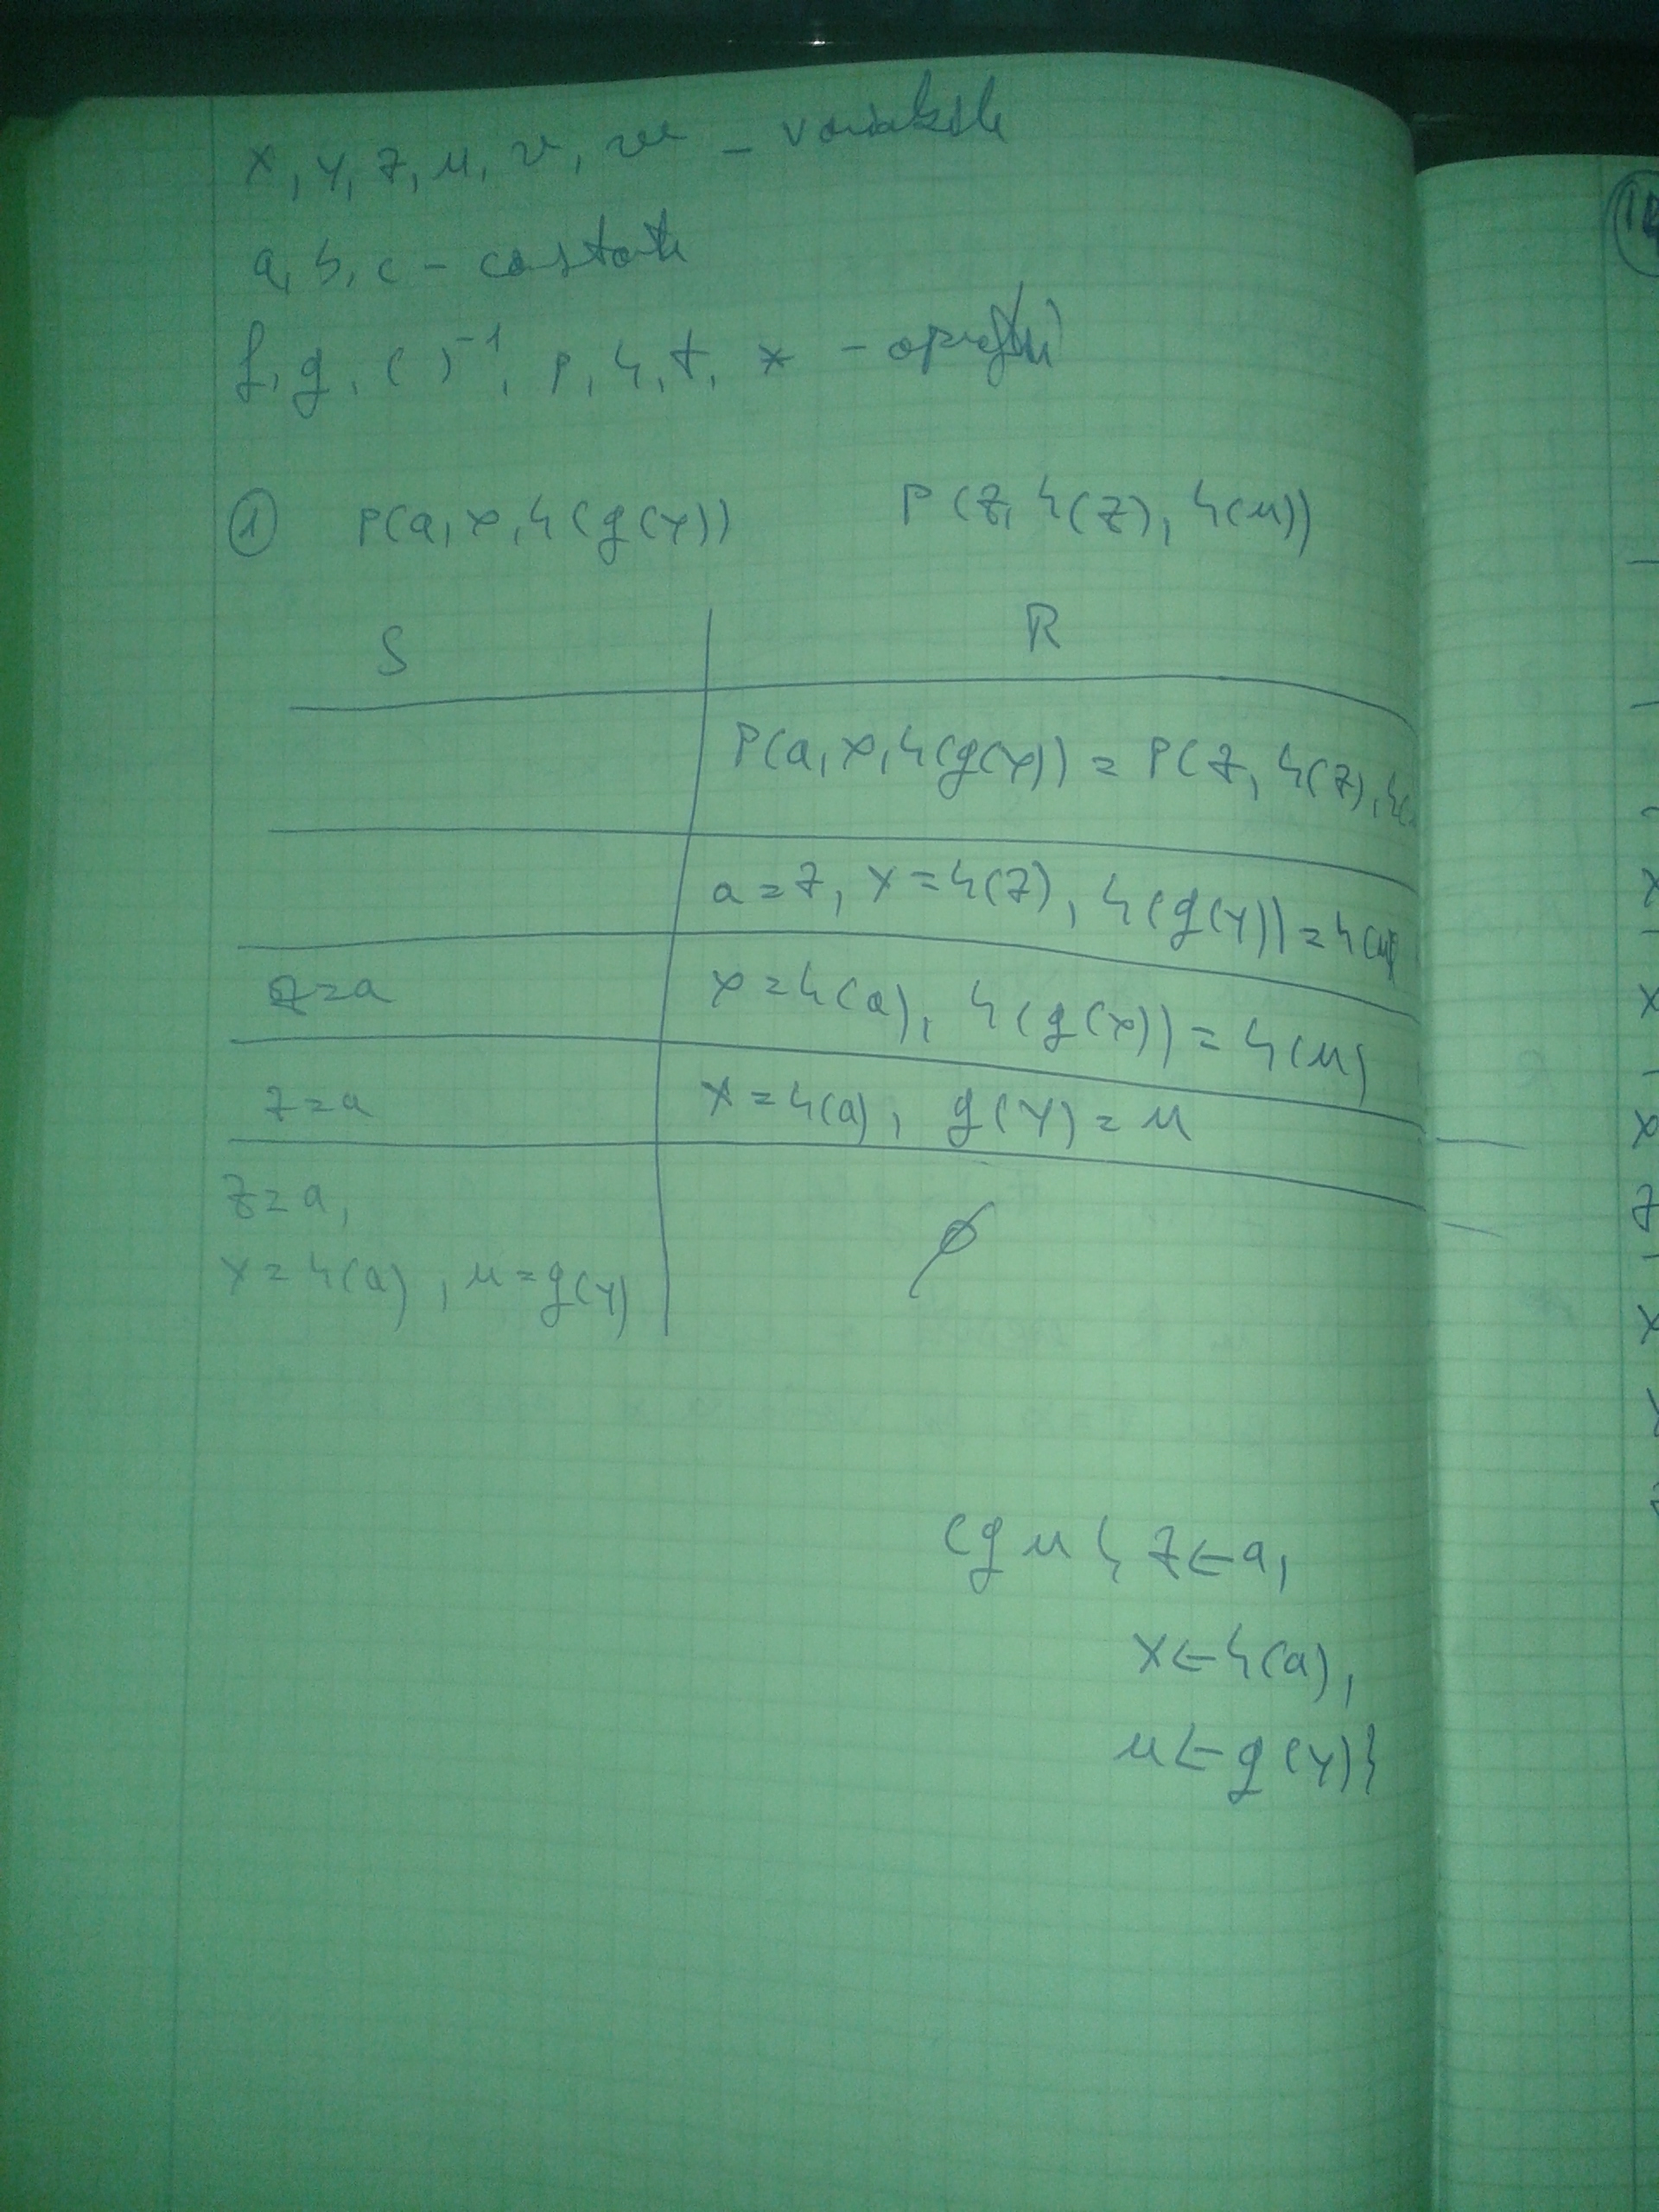 x, y, z, u, v, w – variabile
a, b, c – constante
f, g, ( )⁻¹, p, h, +, * – operații
① P(a, x, h(g(y)) P(z, h(z), h(u))
S R
P(a, x, h(g(y)) = P(z, h(z), h(
a = z, x = h(z), h(g(y)) = h(u)
z = a x = h(a), h(g(y)) = h(u)
z = a x = h(a), g(y) = u
z = a,
x = h(a), u = g(y) ∅
cgu { z ← a,
x ← h(a),
u ← g(y)}